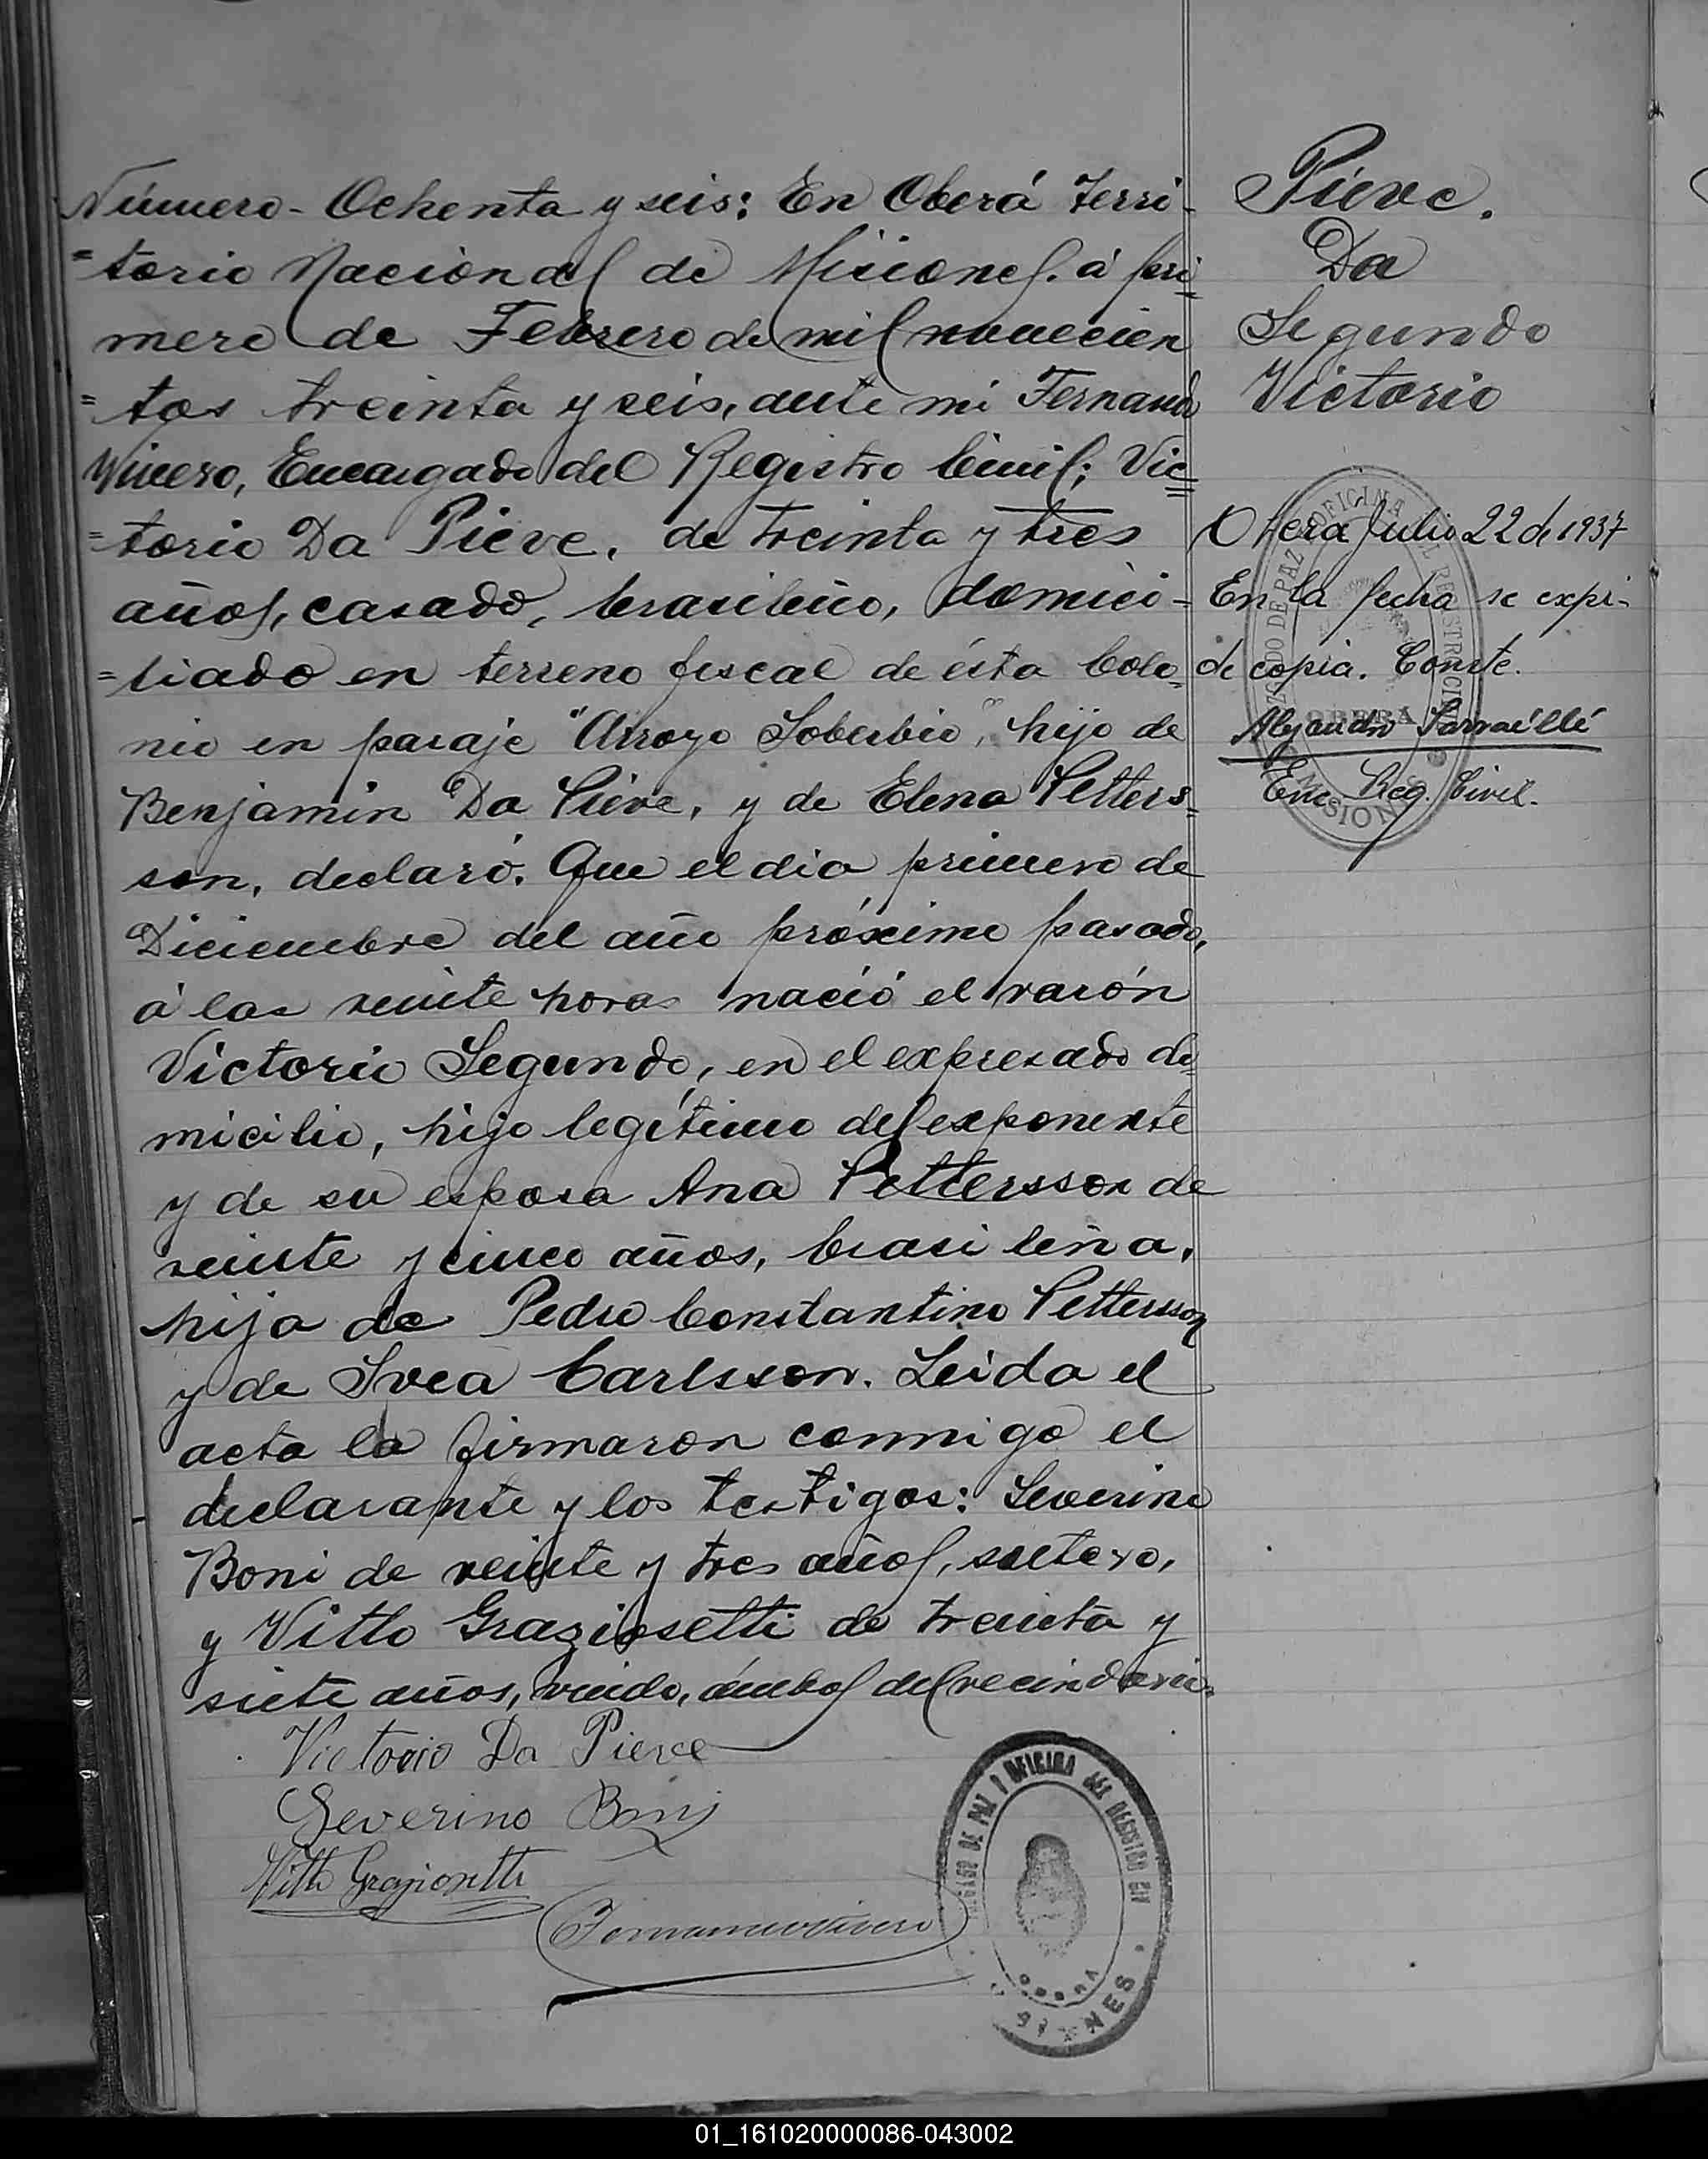 Número - Ochenta y seis: En Oberá Terri-
=torio Nacional de Misiones. á pri=
mero de Febrero de mil novecien
=tos treinta y seis, ante mi Fernando
Vivero, Encargado del Registro Civil; Vic=
=torio Da Pieve, de treinta y tres
años, casado, brasileño, domici=
=liado en terreno fiscal de ésta Colo=
nia en paraje "Arroyo Soberbio", hijo de
Benjamin Da Pieve, y de Elena Petters=
son, declaró: Que el dia primero de
Diciembre del año próximo pasado,
á las veinte horas nació el varón
Victorio Segundo, en el expresado do
micilio, hijo legítimo del exponente
y de su esposa Ana Pettersson de
veinte y cinco años, brasileña,
hija de Pedro Constantino Pettersson
y de Svea Carlsson. Leida el
acta la firmaron conmigo el
declarante y los testigos: Severino
Boni de veinte y tres años, soltero,
y Vitto Graziosetti de treinta y
siete años, viudo, ámbos del vecindario.
Victorio Da Pieve
Severino Boni
Vitto Graziosetti
JUZGADO DE PAZ Y OFICINA DEL REGISTRO CIVIL
OBERA
MISIONES
Pieve.
Da
Segundo
Victorio
Obera Julio 22 de 1937
En la fecha se expi-
de copia. Conste.
Alejandro
Enc. Reg. Civil.
JUZGADO DE PAZ OFICINA DEL REGISTRO CIVIL
OBERA
MISIONES
01_161020000086-043002